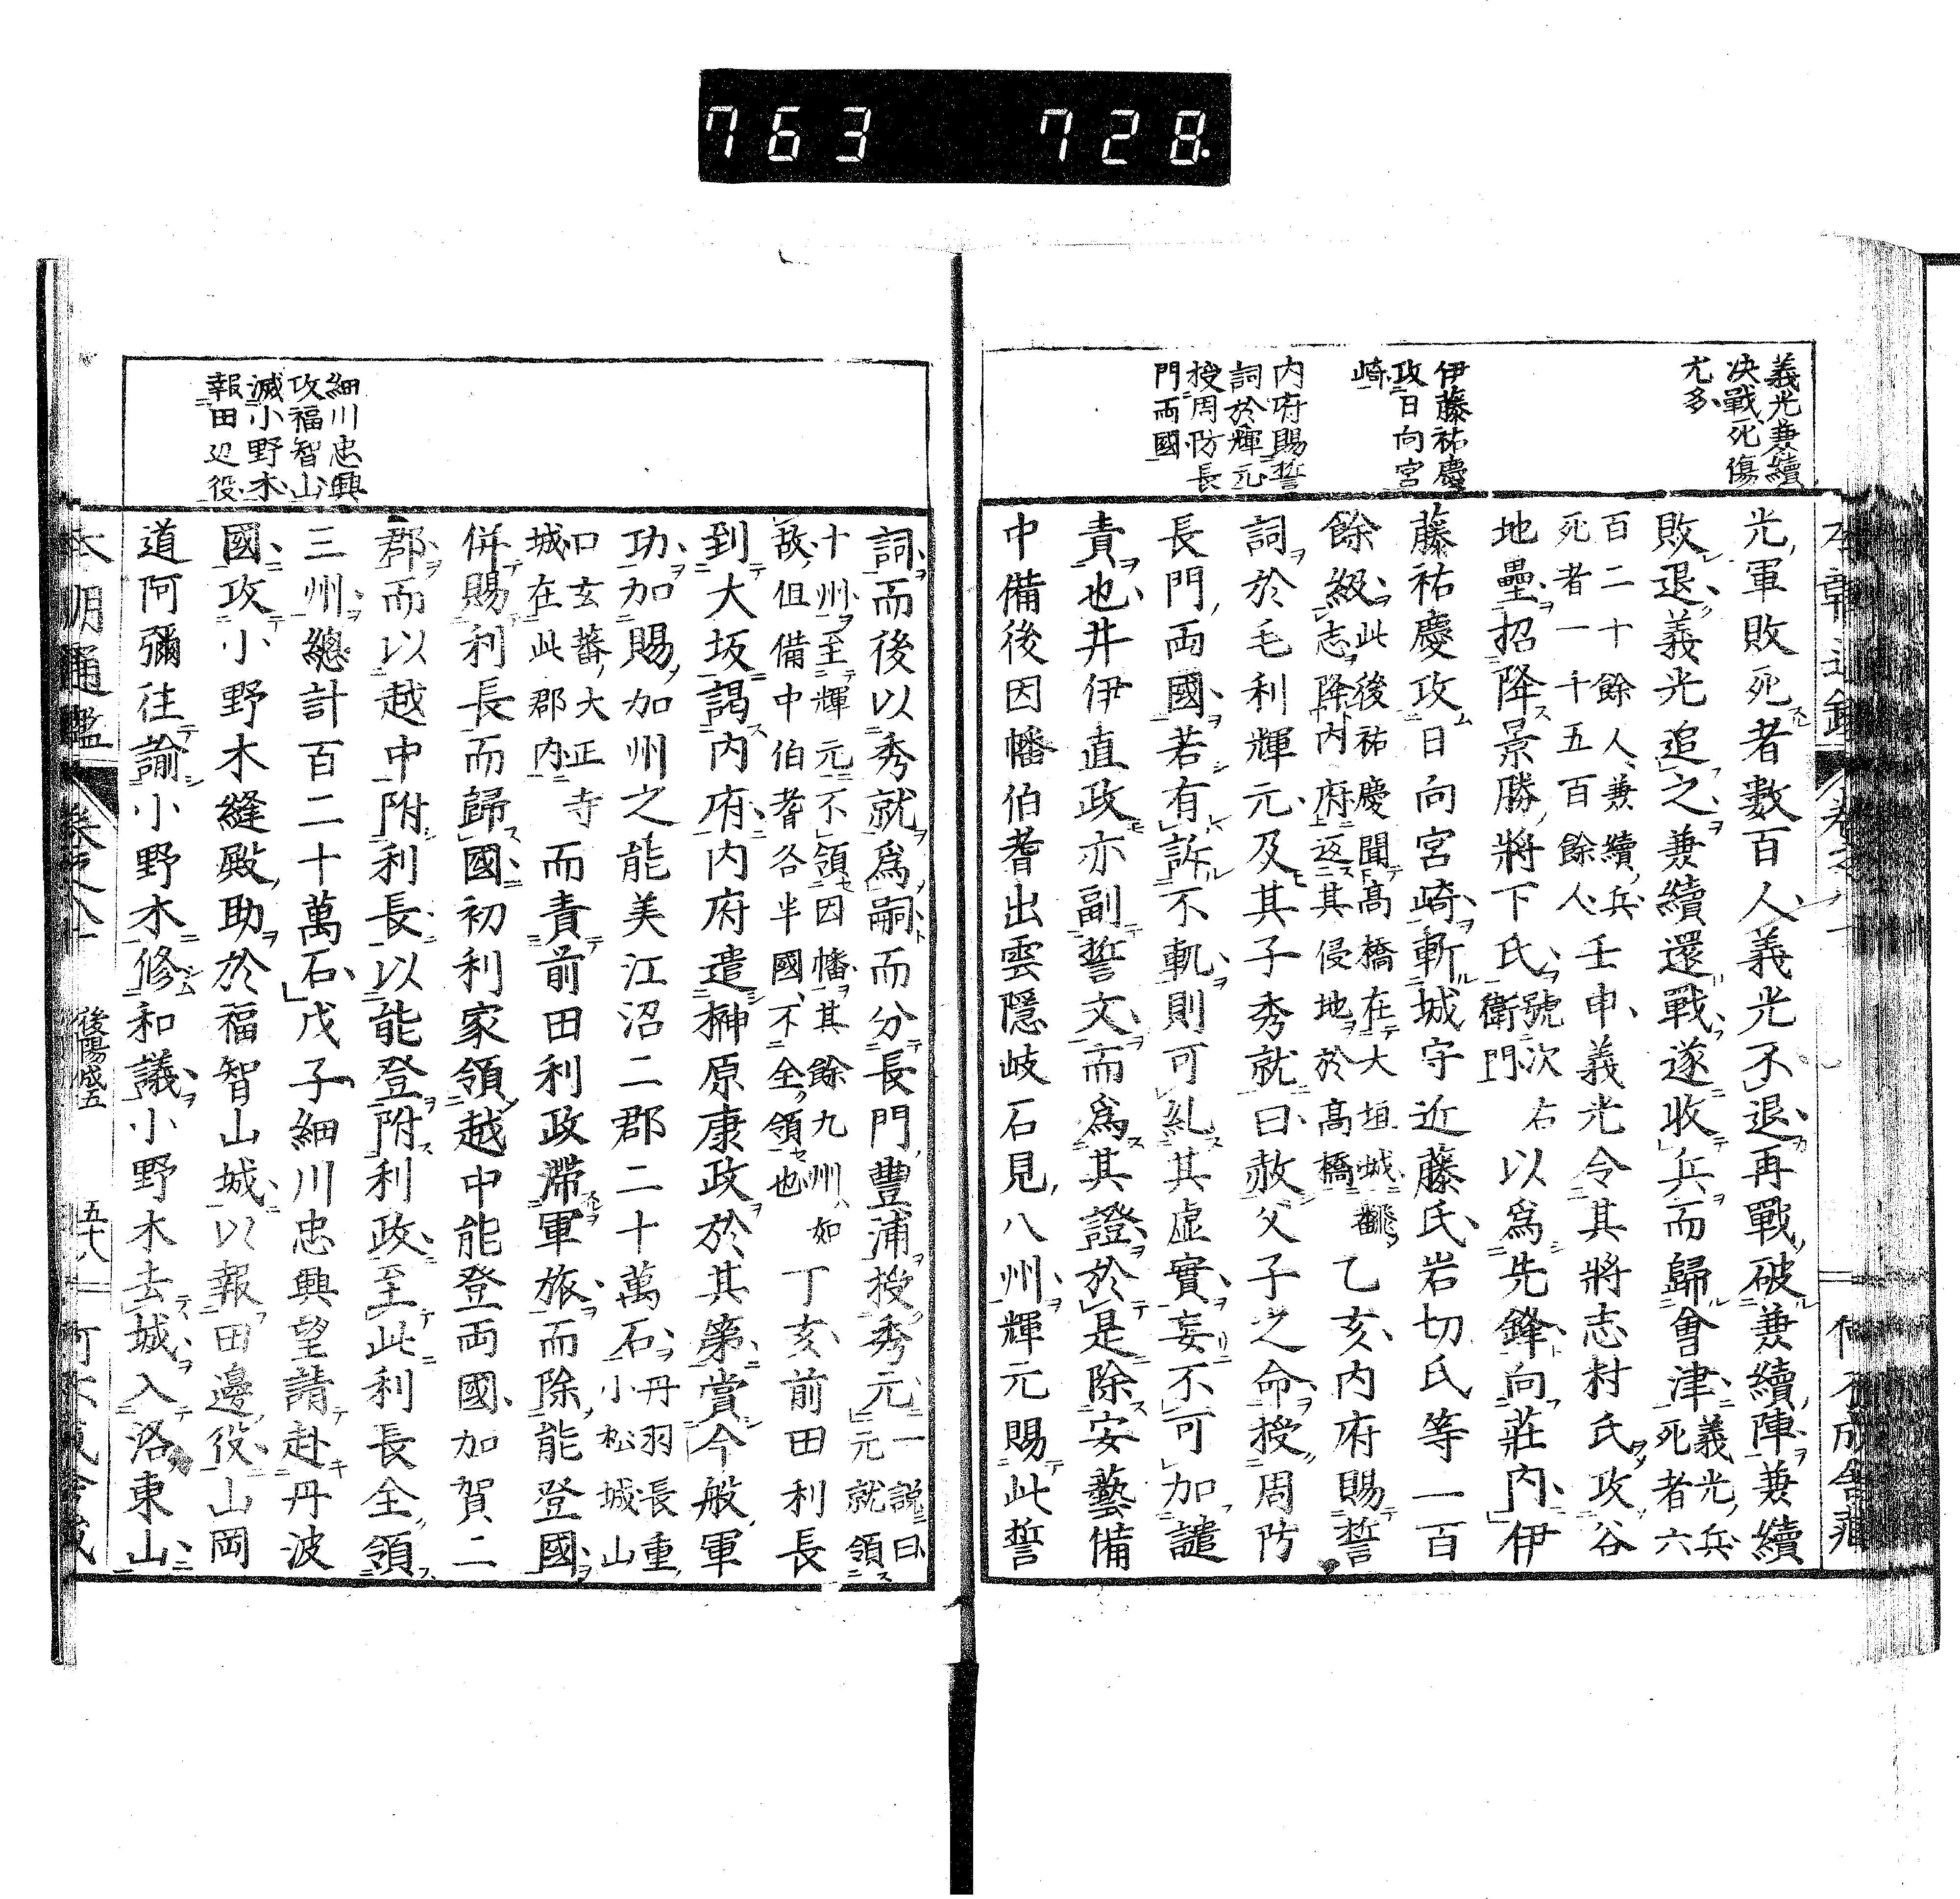 763 728.
義光兼續
决戰死傷
尤多
伊藤祐慶
攻日向宮
崎
内府賜誓
詞於輝元
授周防長
門両國
光軍敗死者數百人義光不退再戰破兼續陣兼續
敗退義光追之兼續還戰遂收兵而歸會津義光兵死者六
百二十餘人兼續兵死者一千五百餘人壬申義光令其將志村氏攻谷
地壘招降景勝將下氏號次右衛門以爲先鋒向莊内伊
藤祐慶攻日向宮崎斬城守近藤氏岩切氏等一百
餘級此後祐慶聞髙橋在大垣城飜志降内府返其侵地於髙橋乙亥内府賜誓
詞於毛利輝元及其子秀就曰赦父子之命授周防
長門両國若有訴不軌則可糺其虚實妄不可加譴
責也井伊直政亦副誓文而爲其證於是除安藝備
中備後因幡伯耆出雲隱岐石見八州輝元賜此誓
詞而後以秀就爲嗣而分長門豐浦授秀元一説曰元就領
十州至輝元不領因幡其餘九州如故但備中伯耆各半國不全領也丁亥前田利長
到大坂謁内府内府遣榊原康政於其第賞今般軍
功加賜加州之能美江沼二郡二十萬石丹羽長重小松城山
口玄蕃大正寺城在此郡内而責前田利政滯軍旅而除能登國
併賜利長而歸國初利家領越中能登両國加賀二
郡而以越中附利長以能登附利政至此利長全領
三州總計百二十萬石戊子細川忠興望請赴丹波
國攻小野木縫殿助於福智山城以報田邊役山岡
道阿彌往諭小野木修和議小野木去城入洛東山
細川忠興
攻福智山
滅小野木
報田辺役
本朝通鑑
後陽成五
五十八